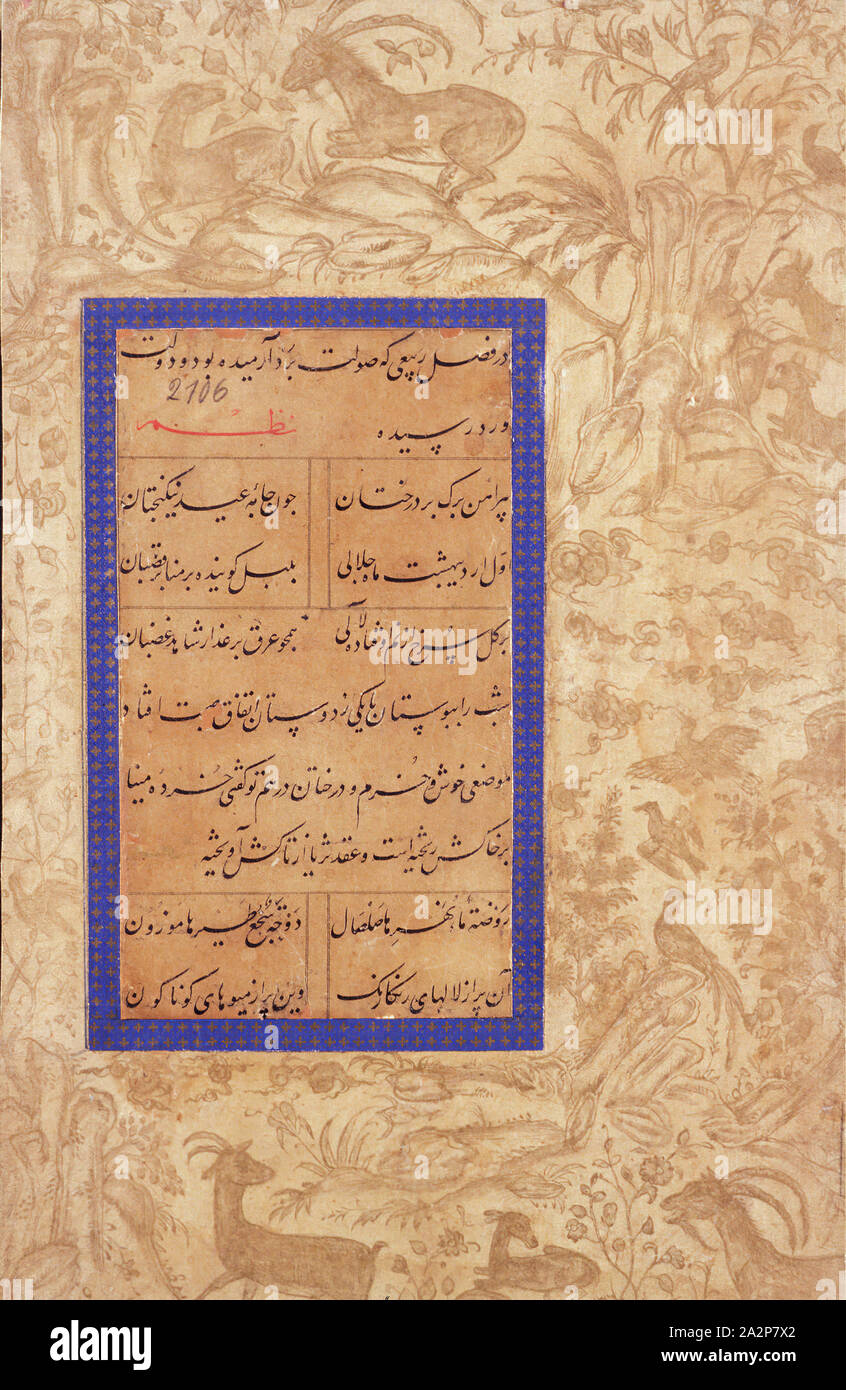 در فصل ربیعی که صولت برد آرمیده بود و دولت
2106
ورد رسیده
نظم
پیراهن برک بر درختان جون جامهٔ عید نیکبختان
اول اردیبهشت ماه جلالی بلبل کوینده بر منابر قضبان
بر کل سرخ از نم اوفتاده لآلی همچو عرق بر عذار شاهد غضبان
شب را ببوستان با یکی از دوستان اتفاق مبیت افتاد
موضعی خوش و خرم و درختان درهم توکفتی خرده مینا
بر خاکش ریخته است و عقد ثریا از تاکش آویخته
روضة ماء نهرها صلصال دوحة سجع طیرها موزون
آن پر از لالهای رنکارنک وین پر از میوهای کوناکون
alamy
Image ID: 2A2P7X2
www.alamy.com